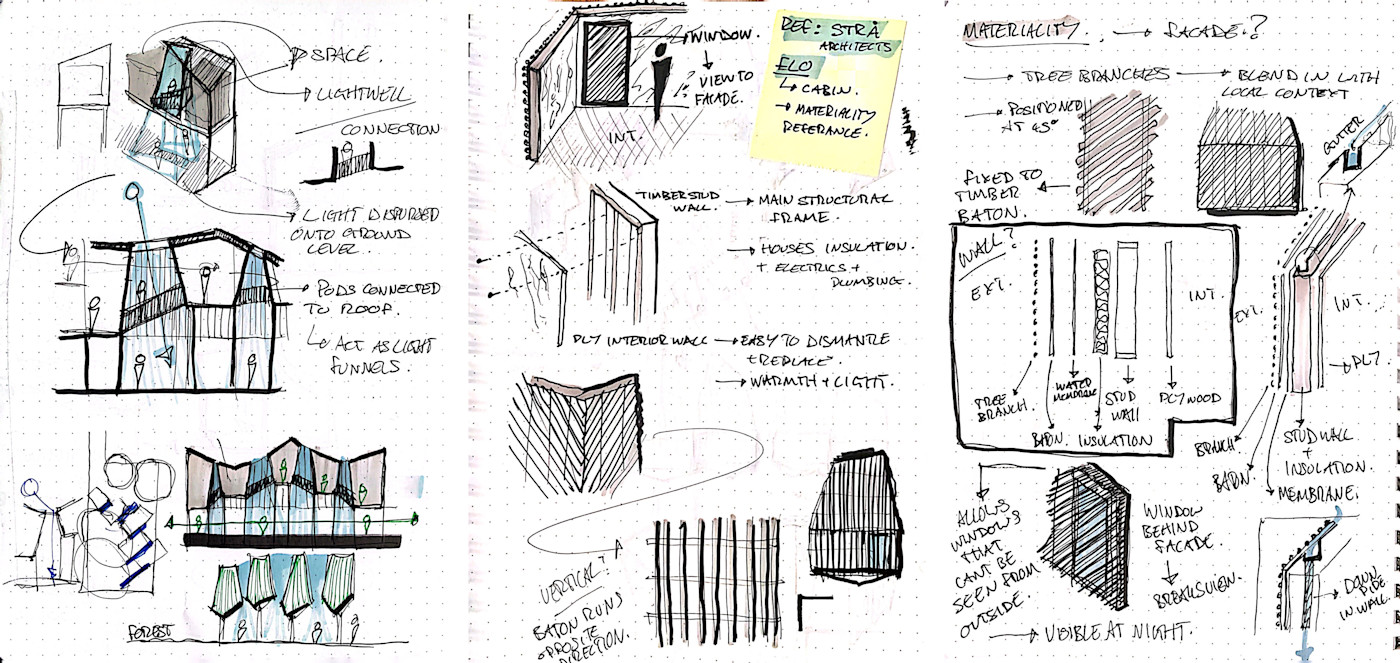 SPACE.
LIGHTWELL
CONNECTION
LIGHT DISPURSED
ONTO GROUND
LEVEL.
PODS CONNECTED
TO ROOF.
ACT AS LIGHT
FUNNELS.
FOREST
WINDOW.
VIEW TO
FACADE.
INT.
REF: STRÅ
ARCHITECTS
ELO
CABIN.
MATERIALITY
REFERANCE.
TIMBER STUD
WALL
MAIN STRUCTURAL
FRAME.
HOUSES INSULATION.
+ ELECTRICS +
PLUMBINGE.
PLY INTERIOR WALL
EASY TO DISMANTLE
+ REPLACE.
WARMTH + LIGHT.
VERTICAL?
BATON RUNS
OPPOSITE
DIRECTION.
MATERIALITY.
FACADE.?
TREE BRANCHES
BLEND IN WITH
LOCAL CONTEXT
POSITIONED
AT 45°
GUTTER
FIXED TO
TIMBER
BATON.
WALL?
EXT.
INT.
TREE
BRANCH.
BATN.
WATER
MEMBRANE
INSULATION
STUD
WALL
PLYWOOD
EXT.
INT.
PLY.
BRANCH
BATN.
STUD WALL
+
INSULATION.
MEMBRANE.
ALLOWS
WINDOWS
THAT
CANT BE
SEEN FROM
OUTSIDE.
VISIBLE AT NIGHT.
WINDOW
BEHIND
FACADE.
BREAKS VIEW.
DOWN
PIPE
IN WALL.